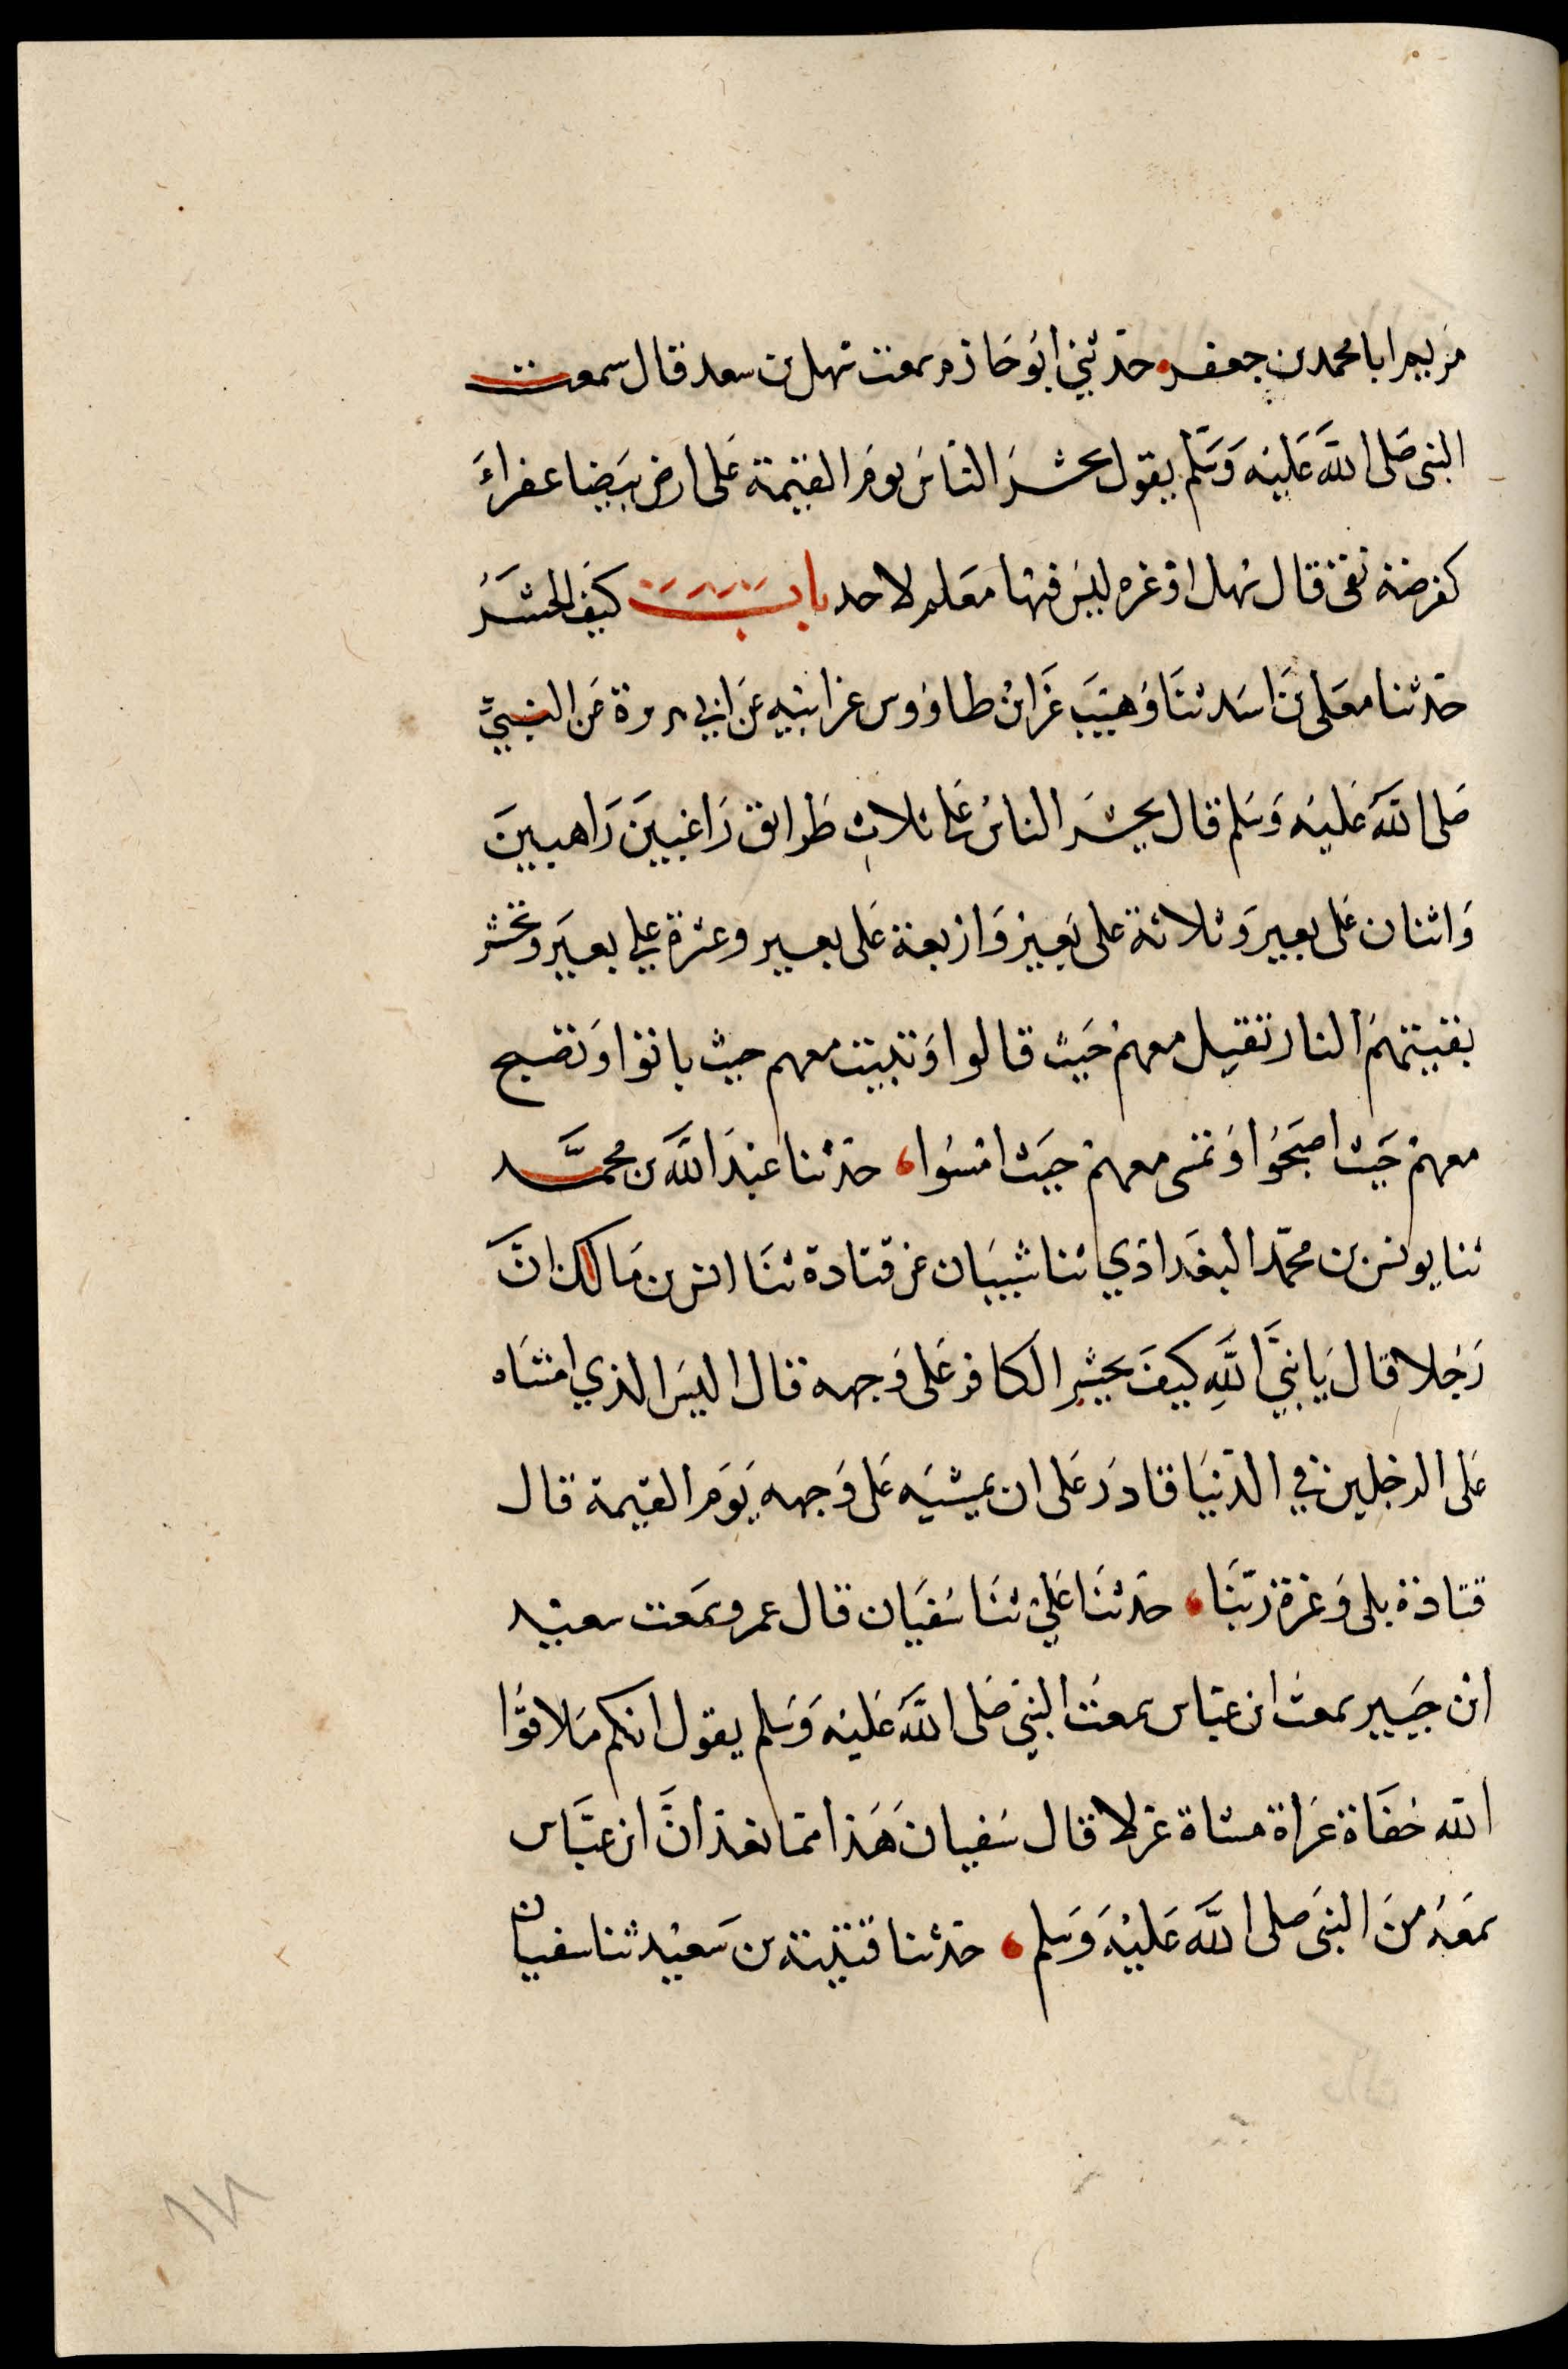 مريم انا محمد بن جعفر حدثني ابو حازم سمعت سهل بن سعد قال سمعت
النبي صلى الله عليه وسلم يقول يحشر الناس يوم القيمة على ارض بيضا عفراء
كقرصة نقي قال سهل او غيره ليس فيها معلم لاحد باب كيف الحشر
حدثنا معلى بن اسد ثنا وهيب عن ابن طاووس عن ابيه عن ابي هريرة عن النبي
صلى الله عليه وسلم قال يحشر الناس على ثلاث طرائق راغبين راهبين
واثنان على بعير وثلاثة على بعير واربعة على بعير وعشرة على بعير وتحشر
بقيتهم النار تقيل معهم حيث قالوا وتبيت معهم حيث باتوا وتصبح
معهم حيث اصبحوا وتمسى معهم حيث امسوا حدثنا عبد الله بن محمد
ثنا يونس بن محمد البغدادي ثنا شيبان عن قتادة ثنا انس بن مالك ان
رجلا قال يا نبي الله كيف يحشر الكافر على وجهه قال اليس الذي امشاه
على الرجلين في الدنيا قادر على ان يمشيه على وجهه يوم القيمة قال
قتادة بلى وعزة ربنا حدثنا علي ثنا سفيان قال عمرو سمعت سعيد
ابن جبير سمعت ابن عباس سمعت النبي صلى الله عليه وسلم يقول انكم ملاقوا
الله حفاة عراة مشاة غرلا قال سفيان هذا مما نعد ان ابن عباس
سمعه من النبي صلى الله عليه وسلم حدثنا قتيبة بن سعيد ثنا سفيان